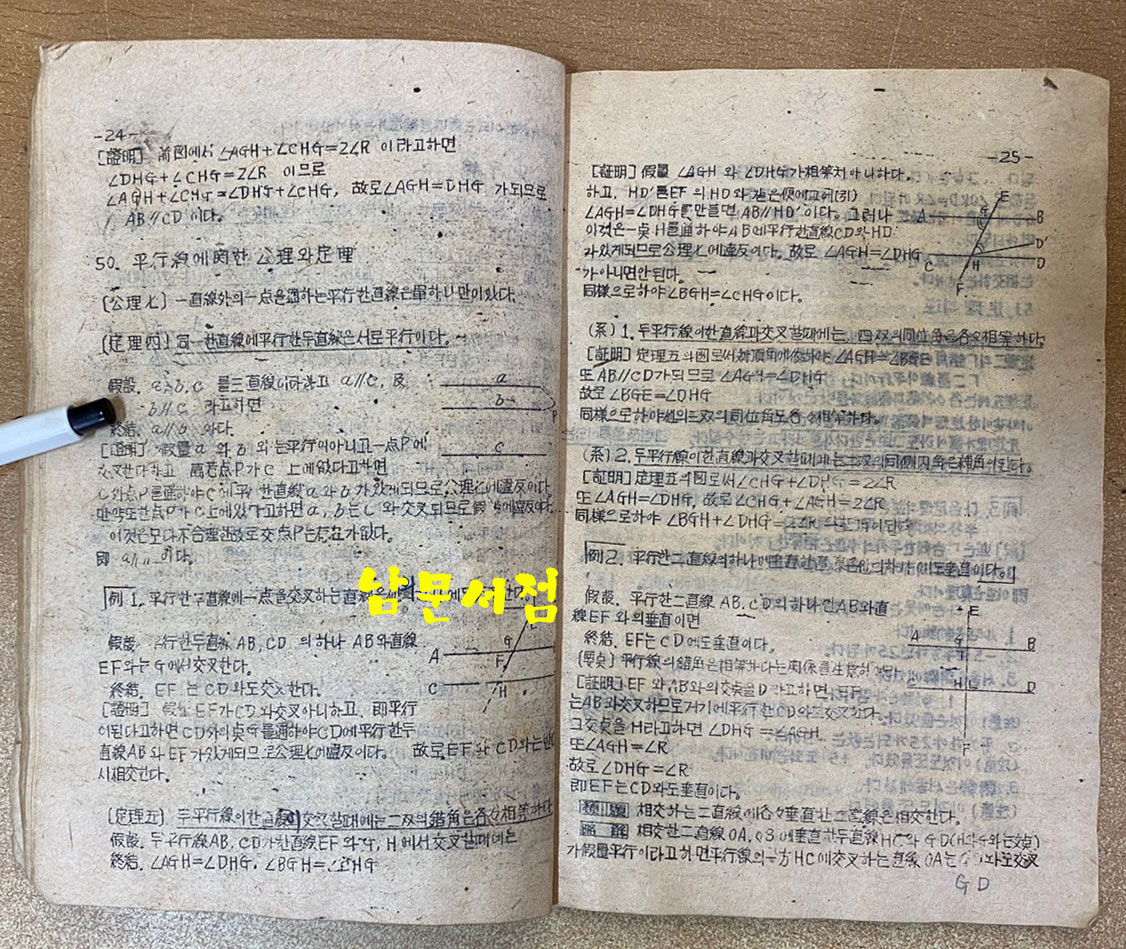 -24-
[證明] 前図에서 ∠AGH+∠CHG=2∠R 이라고하면
∠DHG+∠CHG=2∠R 이므로
∠AGH+∠CHG=∠DHG+∠CHG, 故로∠AGH=DHG 가되므로
AB//CD 이다.
50. 平行線에関한 公理와定理
(公理七) 一直線外의一点을通하는平行한直線은單하나만이있다.
(定理四) 同一한直線에平行한두直線은서로平行이다.
假設. a, b, c 를三直線이라하고 a//c, 及
b//c 라고하면
終結. a//b 이다.
[證明] 假量 a 와 b 와는平行이아니고一点P에
交叉한다하고 萬若点P가 C 上에없다고하면
이것은모다不合理한故로交点P는存在가없다.
即 a// 이다.
例1. 平行한二直線에一点을交叉하는直線은
假設. 平行한두直線AB, CD 의하나 AB와直線
EF와는 G에서交叉한다.
終結. EF 는 CD와도交叉한다.
[證明] 假量EF가CD와交叉아니하고, 即平行
이된다고하면CD外의点G를通하야CD에平行한두
直線AB와EF가있게되므로公理七에違反이다. 故로EF와 CD와는반
시相交한다.
(定理五) 두平行線이한直線이交叉할때에는二双의錯角은各各相等하다
假設. 두平行線AB, CD가한直線EF와G, H에서交叉할때에는
終結. ∠AGH=∠DHG, ∠BGH=∠CHG
a
b
P
c
E
A
G
F
C
H
남문서점
-25-
[証明] 假量 ∠AGH 와 ∠DHG가相等치아니하다.
하고, HD'를EF의HD와같은便에그어(引)
∠AGH=∠DHG를만들면 AB//HD'이다. 그러나
이것은一点H를通하야AB에平行한直線CD와HD
가있게되므로公理七에違反이다. 故로 ∠AGH=∠DHG
가아니면안된다.
同様으로하야∠BGH=∠CHG이다.
(系)1. 두平行線이한直線과交叉할때에는 四双의同位角은各各相等하다.
[証明] 定理五의図로써対頂角에依하야 ∠AGH=∠BGE
또 AB//CD가되므로 ∠AGH=∠DHG
故로 ∠BGE=∠DHG
同様으로하야他의三双의同位角도各各相等하다.
(系)2. 두平行線이한直線과交叉할때에는二双의同側內角은補角이된다.
[証明] 定理五의図로써∠CHG+∠DHG=2∠R
또 ∠AGH=∠DHG, 故로 ∠CHG+∠AGH=2∠R
同様으로하야 ∠BGH+∠DHG=2∠R
例2. 平行한二直線의하나에垂直한直線은他의하나에도垂直이다.
假設. 平行한二直線 AB, CD의하나인AB와直
線EF 와의垂直이면
終結. EF는CD에도垂直이다.
(要点) 平行線의錯角은相等하다는関係를生覚하여라.
[証明] EF 와AB와의交点을D라고하면, EF
는AB와交叉하므로거기에平行한CD와도交叉한다.
그交点을H라고하면 ∠DHG=∠AGH
또∠AGH=∠R
故로 ∠DHG=∠R
即EF는CD와도垂直이다.
類題 相交하는二直線에各々垂直한二直線은相交한다.
略解 相交한二直線OA, OB에垂直한두直線HC와 GD(H와G와는交点)
가假量平行이라고하면平行線의一方HC에交叉하는直線OA는 와도交叉
GD
E
A
G
B
D'
C
H
D
F
E
A
B
C
H
D
F